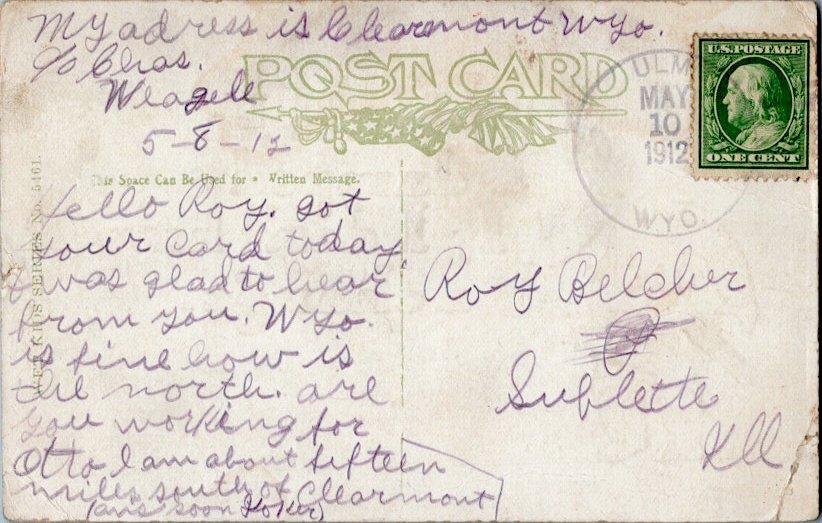 My adress is Clearmont Wyo.
c/o Chas.
Weagele
5-8-12
POST CARD
U.S. POSTAGE
ONE CENT
ULM
MAY
10
1912
WYO.
This Space Can Be Used for Written Message.
SERIES No. 5461.
Hello Roy. got
your card today,
I was glad to hear
from you. Wyo.
is fine how is
the north. are
you working for
Otto I am about fifteen
miles south of Clearmont
(ans soon
Roy Belcher
Suplette
Ill